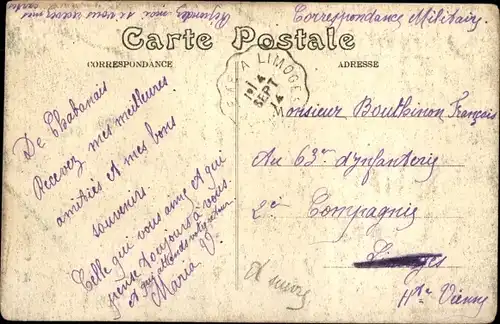 Répondez moi si vous recevez mes cartes
Correspondance Militaire
Carte Postale
CORRESPONDANCE
ADRESSE
A LIMOGES
4
SEPT
14
De Chabanais
Recevez mes meilleures
amitiés et mes bons
souvenirs.
Celle qui vous aime et qui
pense toujours à vous
et qui attend votre retour
Maria V.
Monsieur Bouthinon François
Au 63e d'infanterie
2e Compagnie
Limoges
Hte Vienne
à suivre